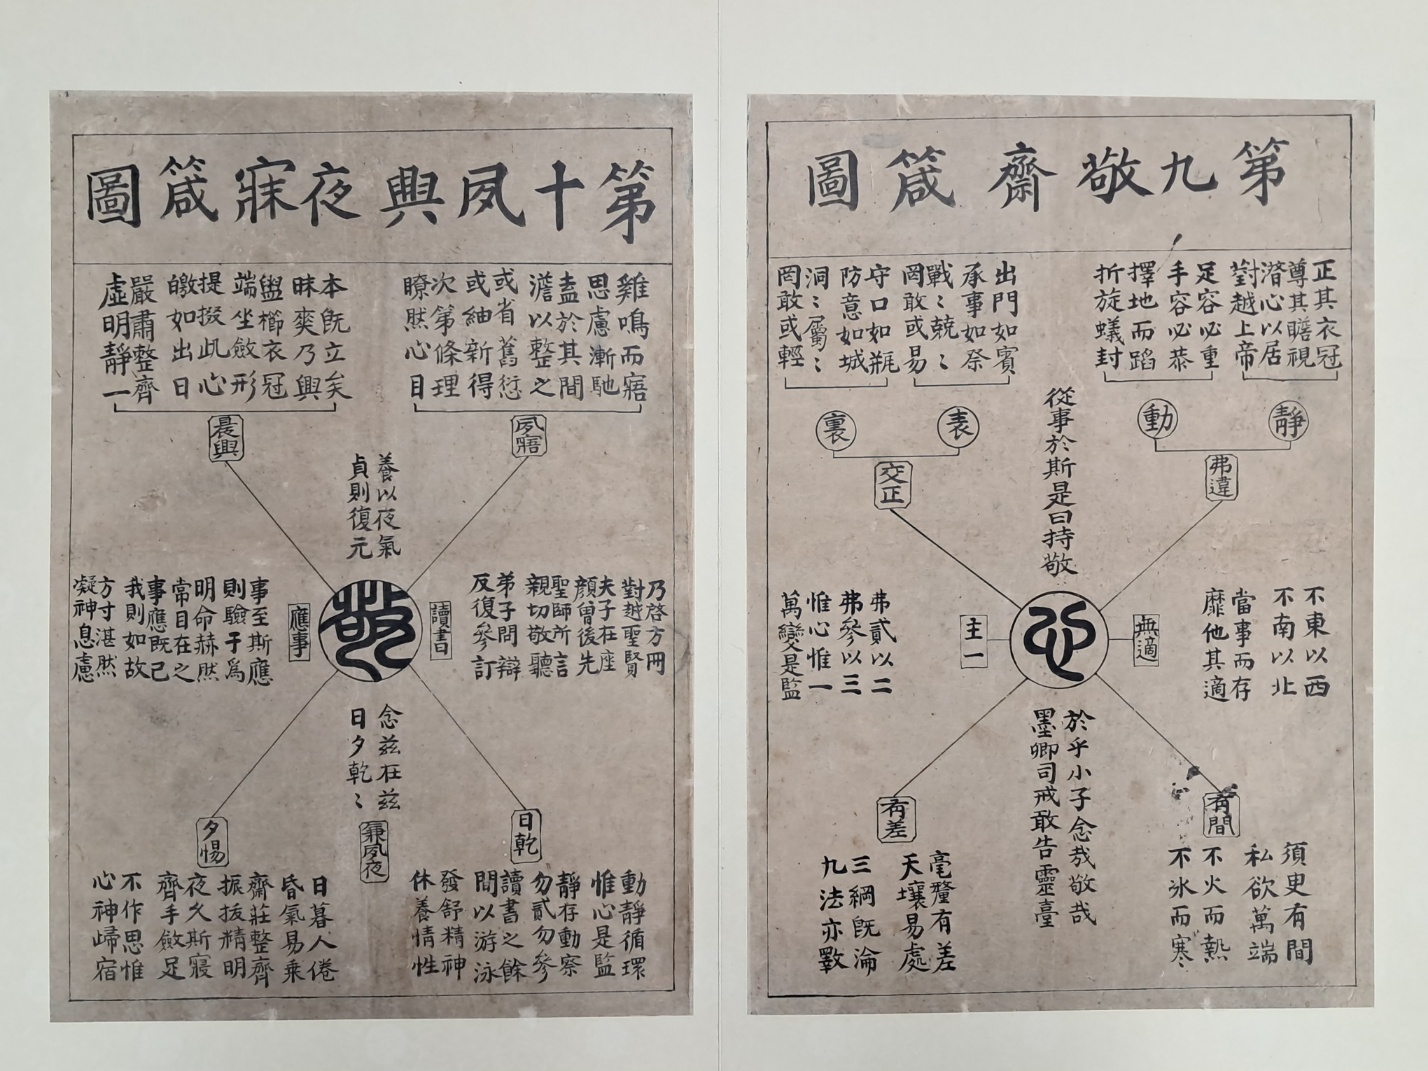 第九敬齋箴圖
正其衣冠
尊其瞻視
潛心以居
對越上帝
足容必重
手容必恭
擇地而蹈
折旋蟻封
出門如賓
承事如祭
戰〻兢〻
罔敢或易
守口如瓶
防意如城
洞〻屬〻
罔敢或輕
靜
動
表
裏
弗違
交正
從事於斯是曰持敬
不東以西
不南以北
當事而存
靡他其適
無適
心
主一
弗貳以二
弗參以三
惟心惟一
萬變是監
於乎小子念哉敬哉
墨卿司戒敢告靈臺
有間
有差
須臾有間
私欲萬端
不火而熱
不氷而寒
毫釐有差
天壤易處
三綱既淪
九法亦斁
第十夙興夜寐箴圖
雞鳴而寤
思慮漸馳
盍於其間
澹以整之
或省舊愆
或紬新得
次第條理
瞭然心目
本既立矣
昧爽乃興
盥櫛衣冠
端坐斂形
提掇此心
皦如出日
嚴肅整齊
虛明靜一
夙寤
晨興
養以夜氣
貞則復元
乃啓方冊
對越聖賢
夫子在座
顏曾後先
聖師所言
親切敬聽
弟子問辯
反復參訂
讀書
敬
應事
事至斯應
則驗于爲
明命赫然
常目在之
事應既已
我則如故
方寸湛然
凝神息慮
念兹在兹
日夕乾〻
日乾
兼夙夜
夕惕
動靜循環
惟心是監
靜存動察
勿貳勿參
讀書之餘
間以游泳
發舒精神
休養情性
日暮人倦
昏氣易乘
齋莊整齊
振拔精明
夜久斯寢
齊手斂足
不作思惟
心神歸宿